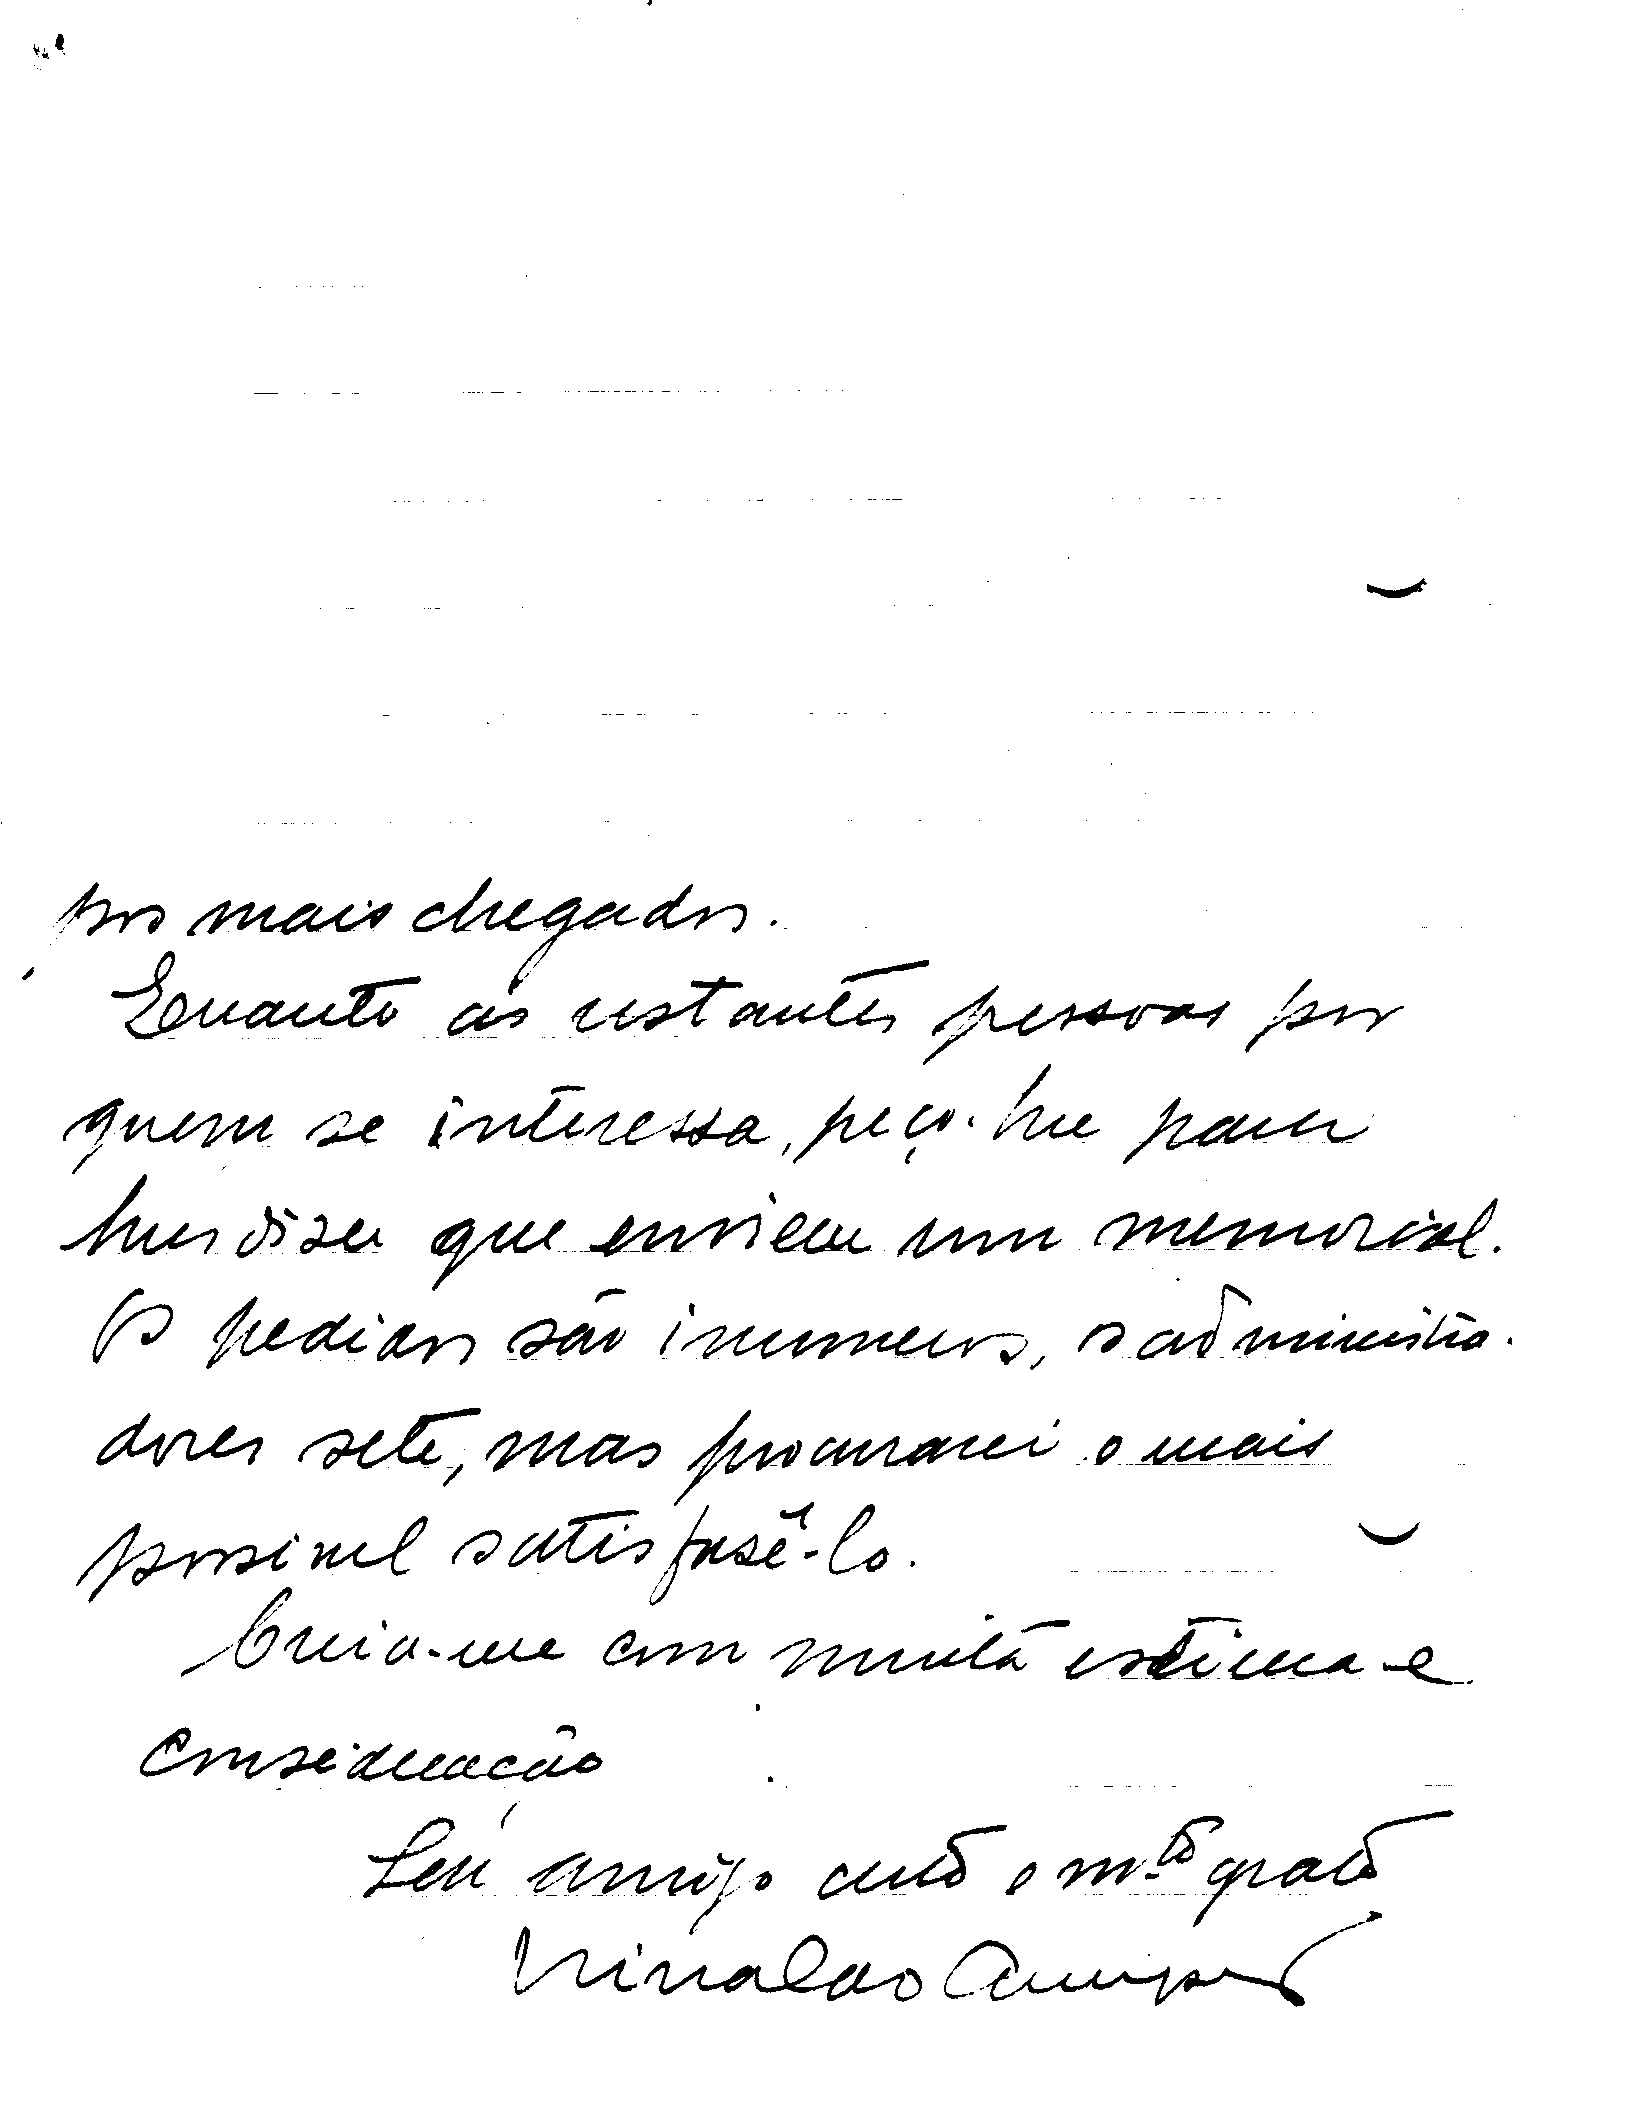 pos mais chegados.
Quanto às restantes pessoas por
quem se interessa, peço-lhe para
lhes dizer que enviem um memorial.
Os pedidos são inumeros, os administra-
dores sete, mas procurarei o mais
possivel satisfazê-lo.
Creia-me com muita estima e
consideração
Seu amigo certo e m.to grato